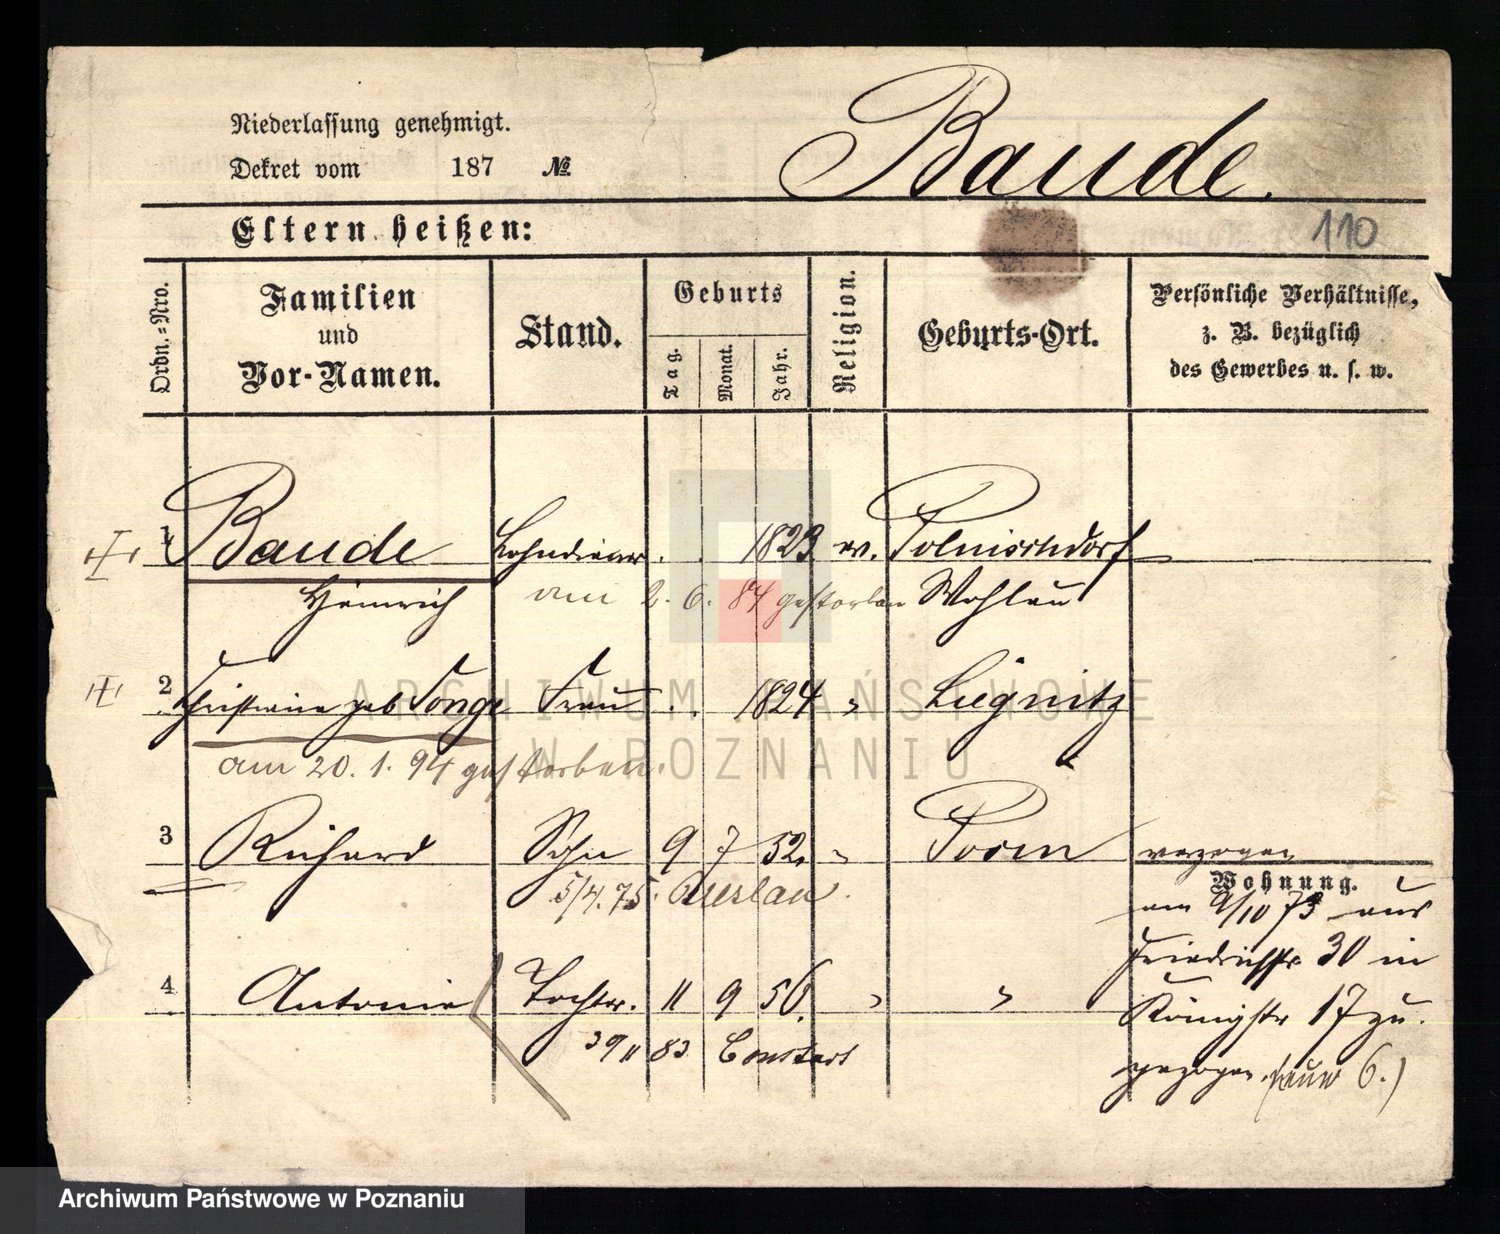 Niederlassung genehmigt.
Dekret vom 187 №
Baude.
Eltern heißen:
110
Ordn.-Nro.
Familien und Vor-Namen.
Stand.
Geburts
Tag.
Monat.
Jahr.
Religion.
Geburts-Ort.
Persönliche Verhältnisse, z. B. bezüglich des Gewerbes u. s. w.
1 Baude Lohndiener . . 1823. ev. Polnischdorf
Heinrich am 2. 6. 84 gestorben Wohlau
2 Christiane geb Frau . . 1824 " Liegnitz
am 20. 1. 94 gestorben.
3 Richard Sohn 9 7 52. " Posen verzogen
5/4. 75. Breslau.
Wohnung.
am 9/10 73 aus
Friedrichstr 30 in
4 Antonie Tochter. 11 9 56. " "
Königstr 17 zu
gezogen. 6.)
83
ARCHIWUM PAŃSTWOWE
W POZNANIU
Archiwum Państwowe w Poznaniu